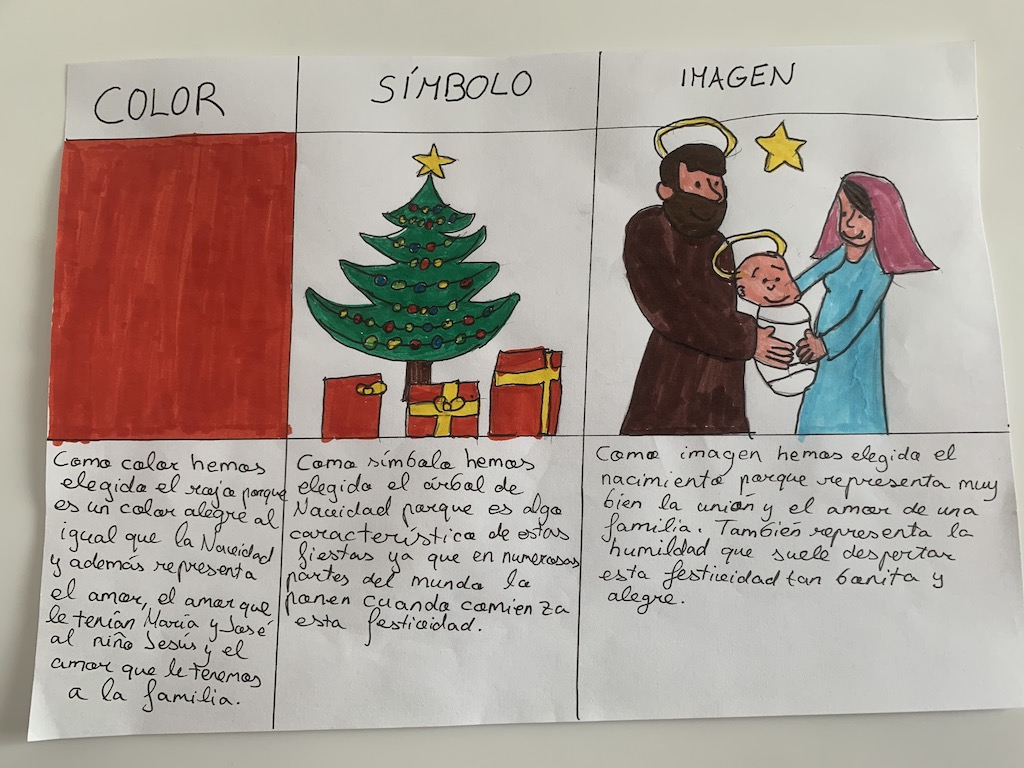 COLOR
SÍMBOLO
IMAGEN
Como color hemos
elegido el rojo porque
es un color alegre al
igual que la Navidad
y además representa
el amor, el amor que
le tenían María y José
al niño Jesús y el
amor que le tenemos
a la familia.
Como símbolo hemos
elegido el árbol de
Navidad porque es algo
característico de estas
fiestas ya que en numerosas
partes del mundo lo
ponen cuando comienza
esta festividad.
Como imagen hemos elegido el
nacimiento porque representa muy
bien la unión y el amor de una
familia. También representa la
humildad que suele despertar
esta festividad tan bonita y
alegre.